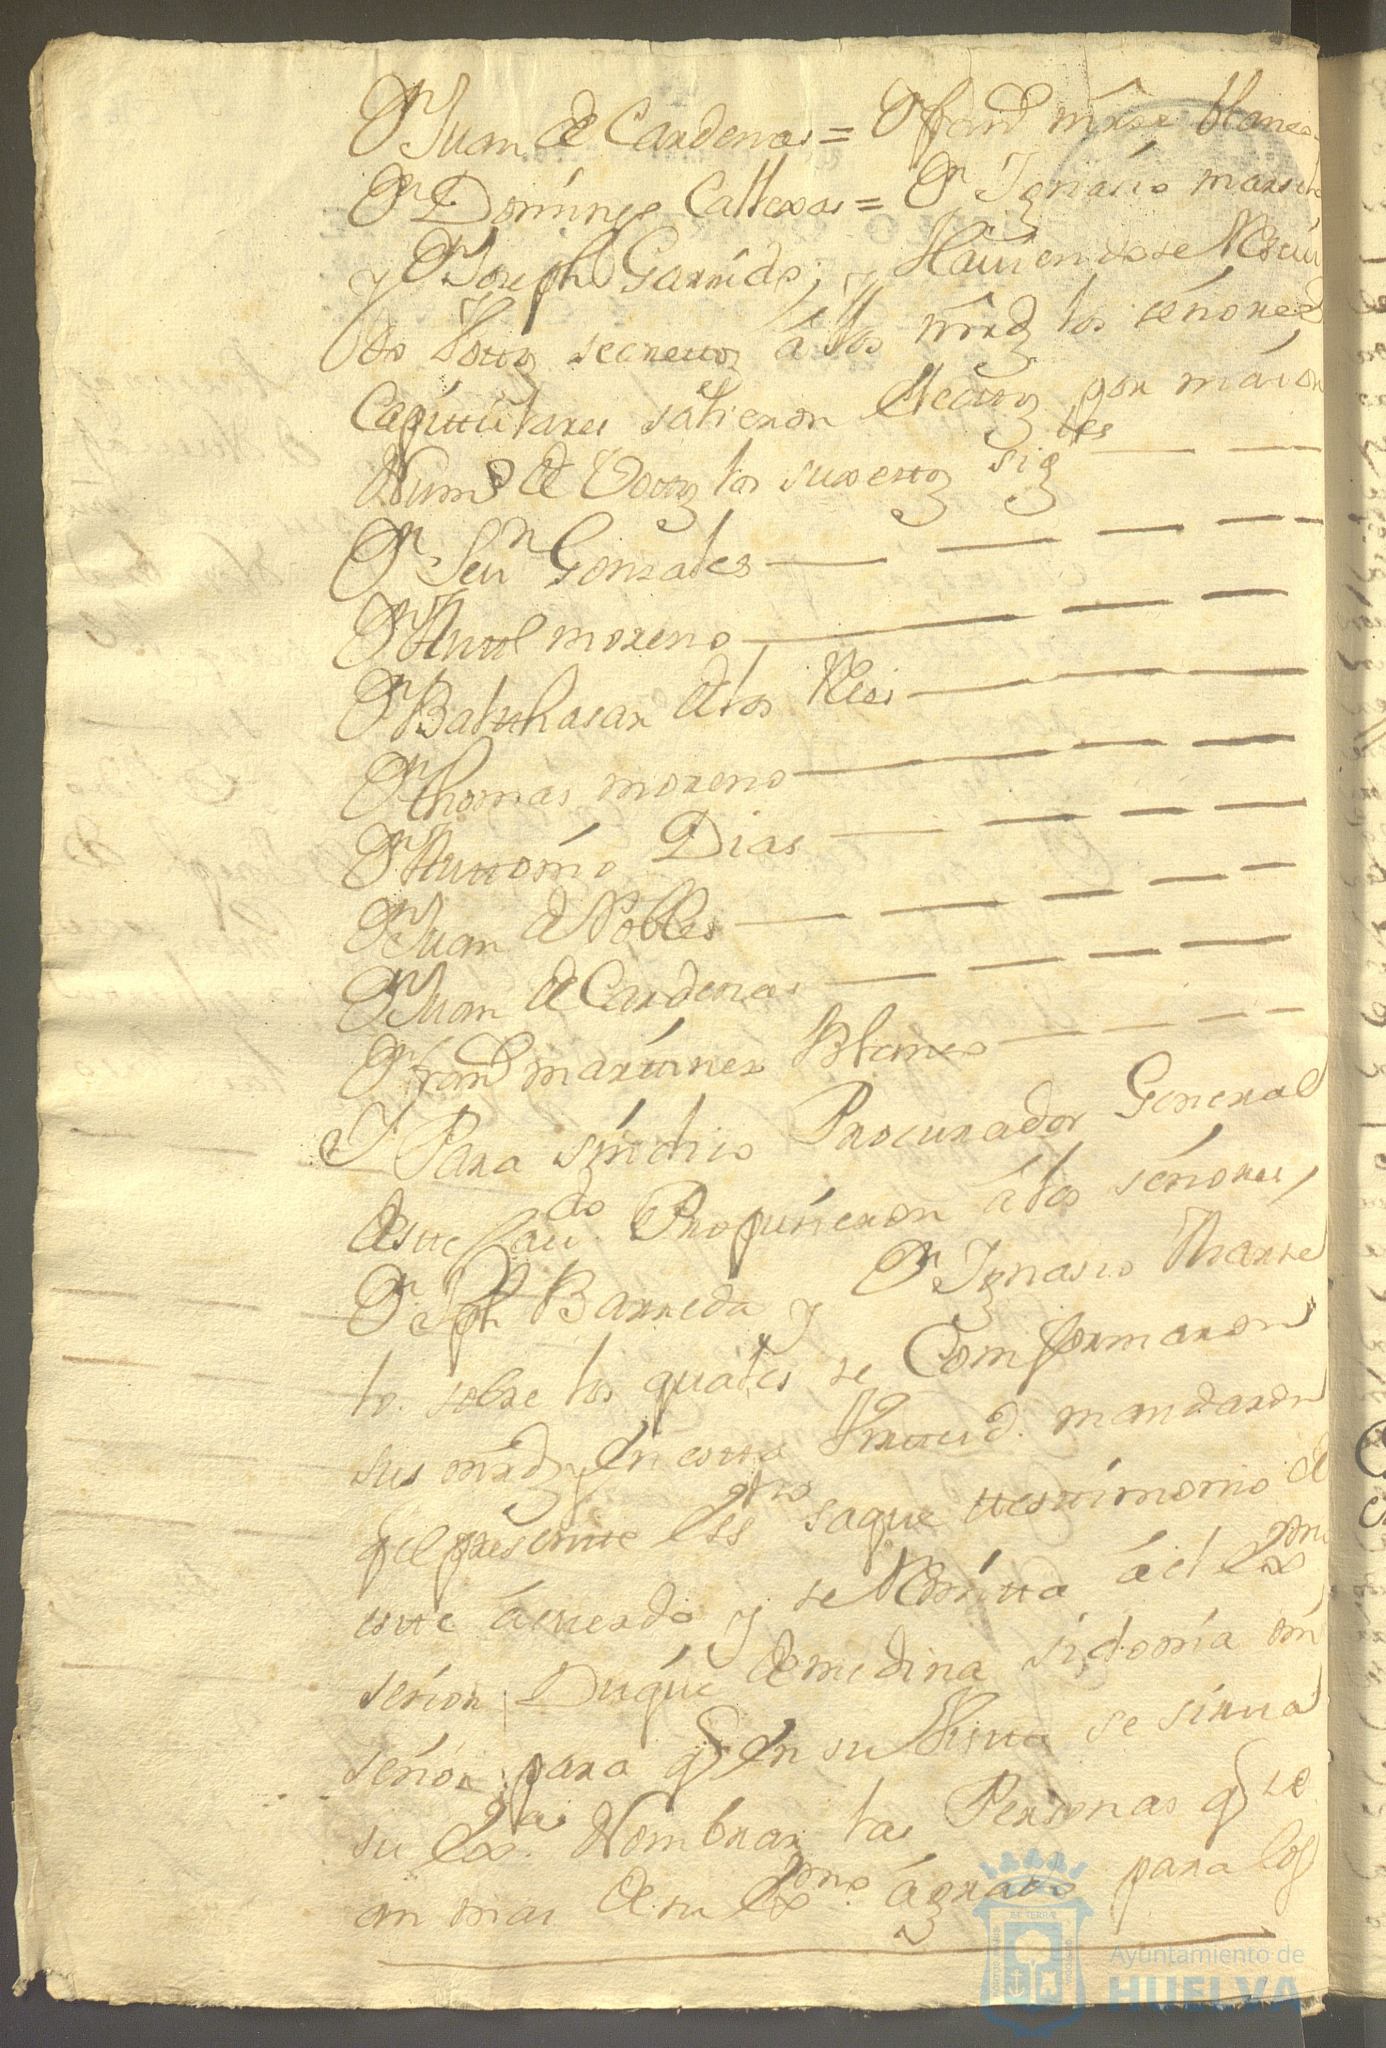 Dn Juan de Cardenas = Dn franco mrne blanco
Dn Domingo Callexas = Dn Ignacio marsel
y Dn Joseph Garrido; y Haviendose Reciui
do Vottos secrettos a llos mrds los señores
Capittulares salieron Electtos por maior
Num.o de Vottos los suxettos sigtes
Dn Seun Gonzales
Dn Anttol moreno
Dn Baltthasar de los Reies
Dn thomas moreno
Dn Anttonio Dias
Dn Juan de Robles
Dn Juan de Cardenas
Dn franco martines Blanco
Y Para sindico Procurador General
destte Cauido Propusieron a los señores,
Dn Jph Barreda y Dn Ignasio Marse
lo. sobre los quales se Comformaron
sus mrds y en estta Virttud. mandaron
qel presentte Essno saque ttesttimonio de
estte acuerdo y se Remitta a el Exmo
señor Duque de medina sidonia mi
señor para q en su Vistta se sirua
su Exa. Nombrar las Personas q se
an mas de su Exmo. agrado para los
Ayuntamiento de
HUELVA